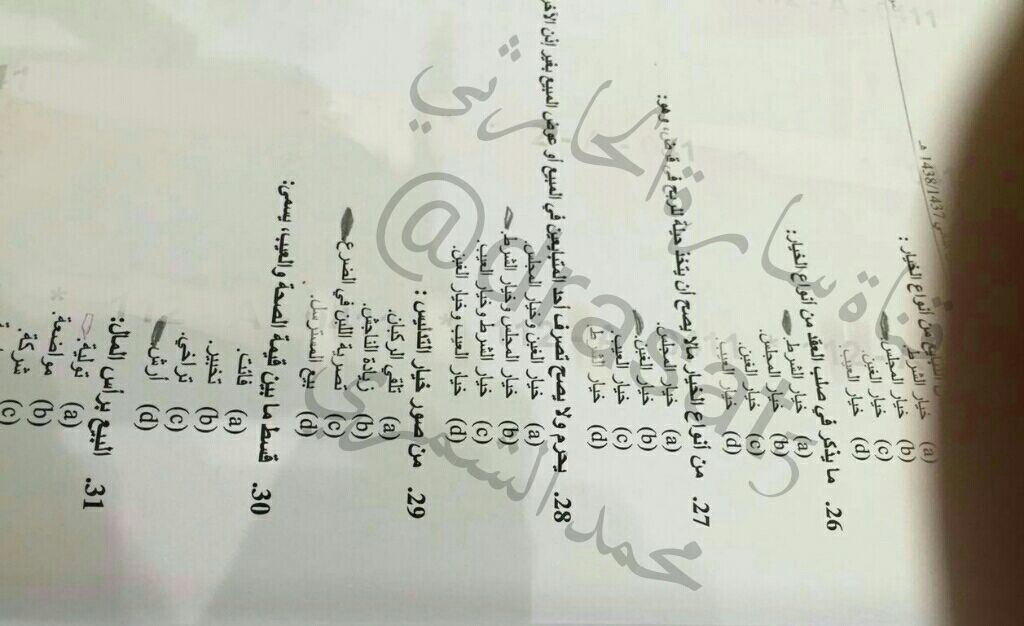 1438/1437 هـ
من أنواع الخيار :
(a) خيار الشرط
(b) خيار المجلس
(c) خيار الغبن.
(d) خيار العيب
26. ما يذكر في صلب العقد من أنواع الخيار:
(a) خيار الشرط
(b) خيار المجلس.
(c) خيار الغبن.
(d) خيار العيب
27. من أنواع الخيار مالا يصح أن يتخذ حيلة للربح في قرض، وهو:
(a) خيار المجلس.
(b) خيار الغبن.
(c) خيار العيب.
(d) خيار الشرط
28. يحرم ولا يصح تصرف أحد المتبايعين في المبيع أو عوض المبيع بغير إذن الآخر
(a) خيار الغبن وخيار المجلس
(b) خيار المجلس وخيار الشرط.
(c) خيار الشرط وخيار العيب.
(d) خيار العيب وخيار الغبن.
29. من صور خيار التدليس :
(a) تلقي الركبان.
(b) زيادة الناجش.
(c) تصرية اللبن في الضرع
(d) بيع المسترسل.
30. قسط ما بين قيمة الصحة والعيب، يسمى:
(a) فائت.
(b) تخيير.
(c) تراخي.
(d) أرش
31. البيع برأس المال:
(a) تولية.
(b) مواضعة.
(c) شركة.
محمد الشمري